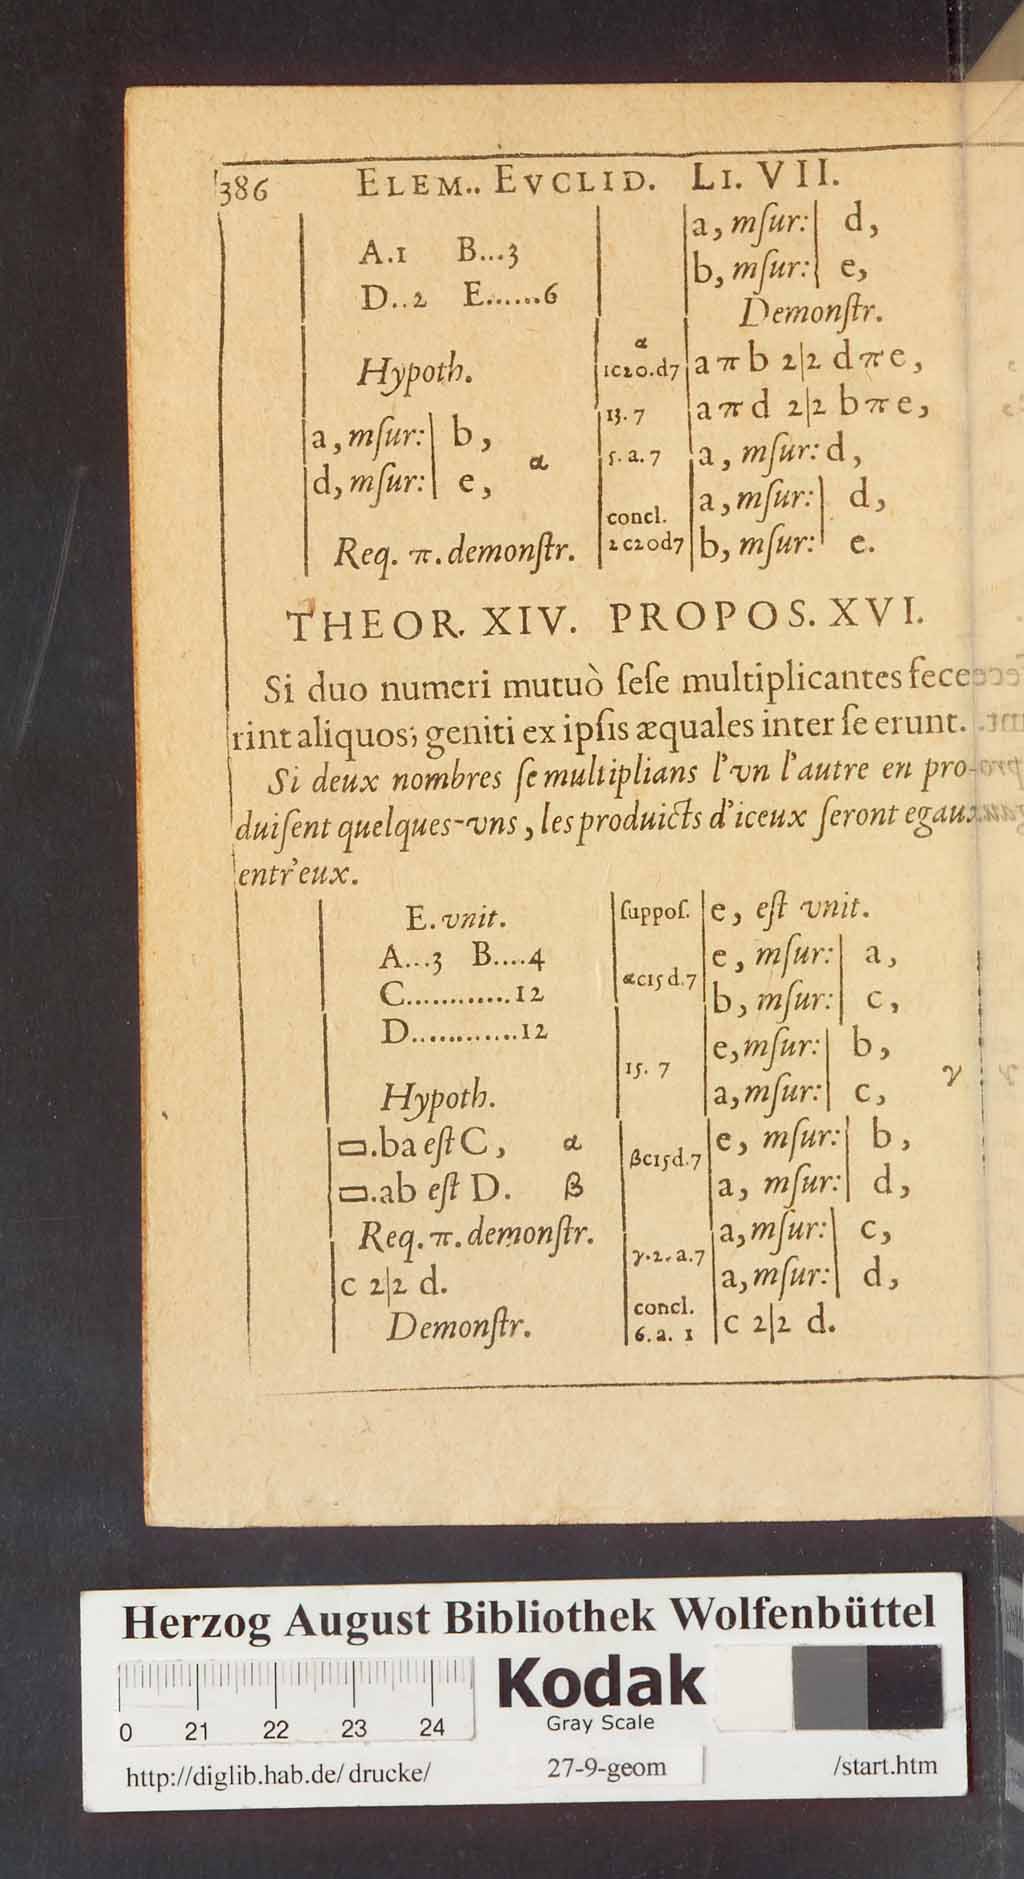 386 ELEM.. EVCLID. LI. VII.
A.1 B...3
D..2 E......6
Hypoth.
a, mſur:| b,
d, mſur:| e, α
Req. π. demonſtr.
a, mſur:| d,
b, mſur:| e,
Demonſtr.
α
1c20.d7 a π b 2|2 d π e,
13. 7 a π d 2|2 b π e,
5. a. 7 a, mſur: d,
a, mſur:| d,
concl.
2c20d7 b, mſur:| e.
THEOR. XIV. PROPOS. XVI.
Si duo numeri mutuò ſeſe multiplicantes fece
rint aliquos; geniti ex ipſis æquales inter ſe erunt.
Si deux nombres ſe multiplians l'vn l'autre en pro-
duiſent quelques-vns, les produicts d'iceux ſeront egaux
entr'eux.
E. vnit.
A...3 B....4
C............12
D............12
Hypoth.
▭.ba eſt C, α
▭.ab eſt D. β
Req. π. demonſtr.
c 2|2 d.
Demonſtr.
ſuppoſ. e, eſt vnit.
e, mſur:| a,
αc15d.7
b, mſur:| c,
e, mſur:| b,
15. 7 γ
a, mſur:| c,
e, mſur:| b,
βc15d.7
a, mſur:| d,
a, mſur:| c,
γ.2.a.7
a, mſur:| d,
concl.
6. a. 1 c 2|2 d.
Herzog August Bibliothek Wolfenbüttel
Kodak
Gray Scale
0 21 22 23 24
http://diglib.hab.de/drucke/ 27-9-geom /start.htm